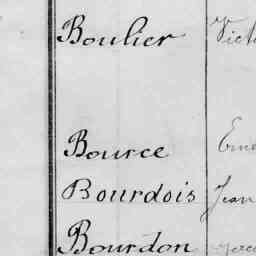 Boulier Vict
Bource Erne
Bourdois Jean
Bourdon